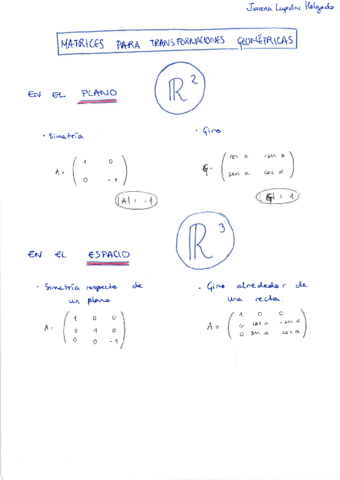 Jimena Lupión Holgado
MATRICES PARA TRANSFORMACIONES GEOMÉTRICAS
EN EL PLANO ℝ²
· Simetría
A = ( 1 0
0 -1 )
|A| = -1
· Giro
G = ( cos α -sen α
sen α cos α )
|G| = 1
EN EL ESPACIO ℝ³
· Simetría respecto de
un plano
A = ( 1 0 0
0 1 0
0 0 -1 )
· Giro alrededor de
una recta.
A = ( 1 0 0
0 cos α -sen α
0 sen α cos α )